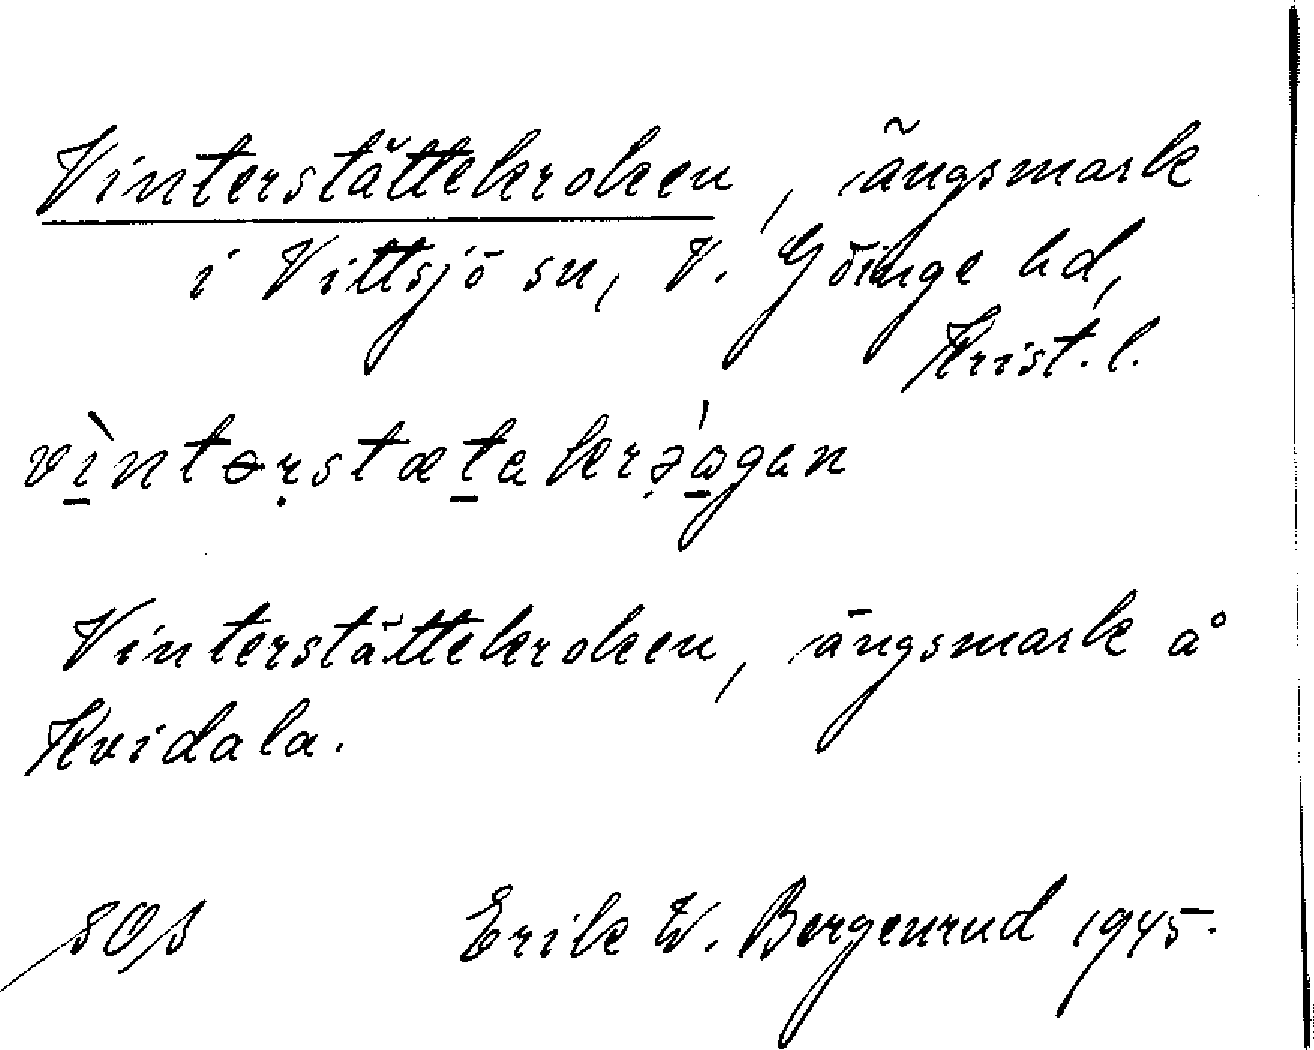 Vinterstättekroken, ängsmark
i Vittsjö sn, V. Göinge hd,
Krist. l.
vìntərstætakrɔ́agen
Vinterstättekroken, ängsmark å
Hvidala.
SOS Erik W. Bergenrud 1945.